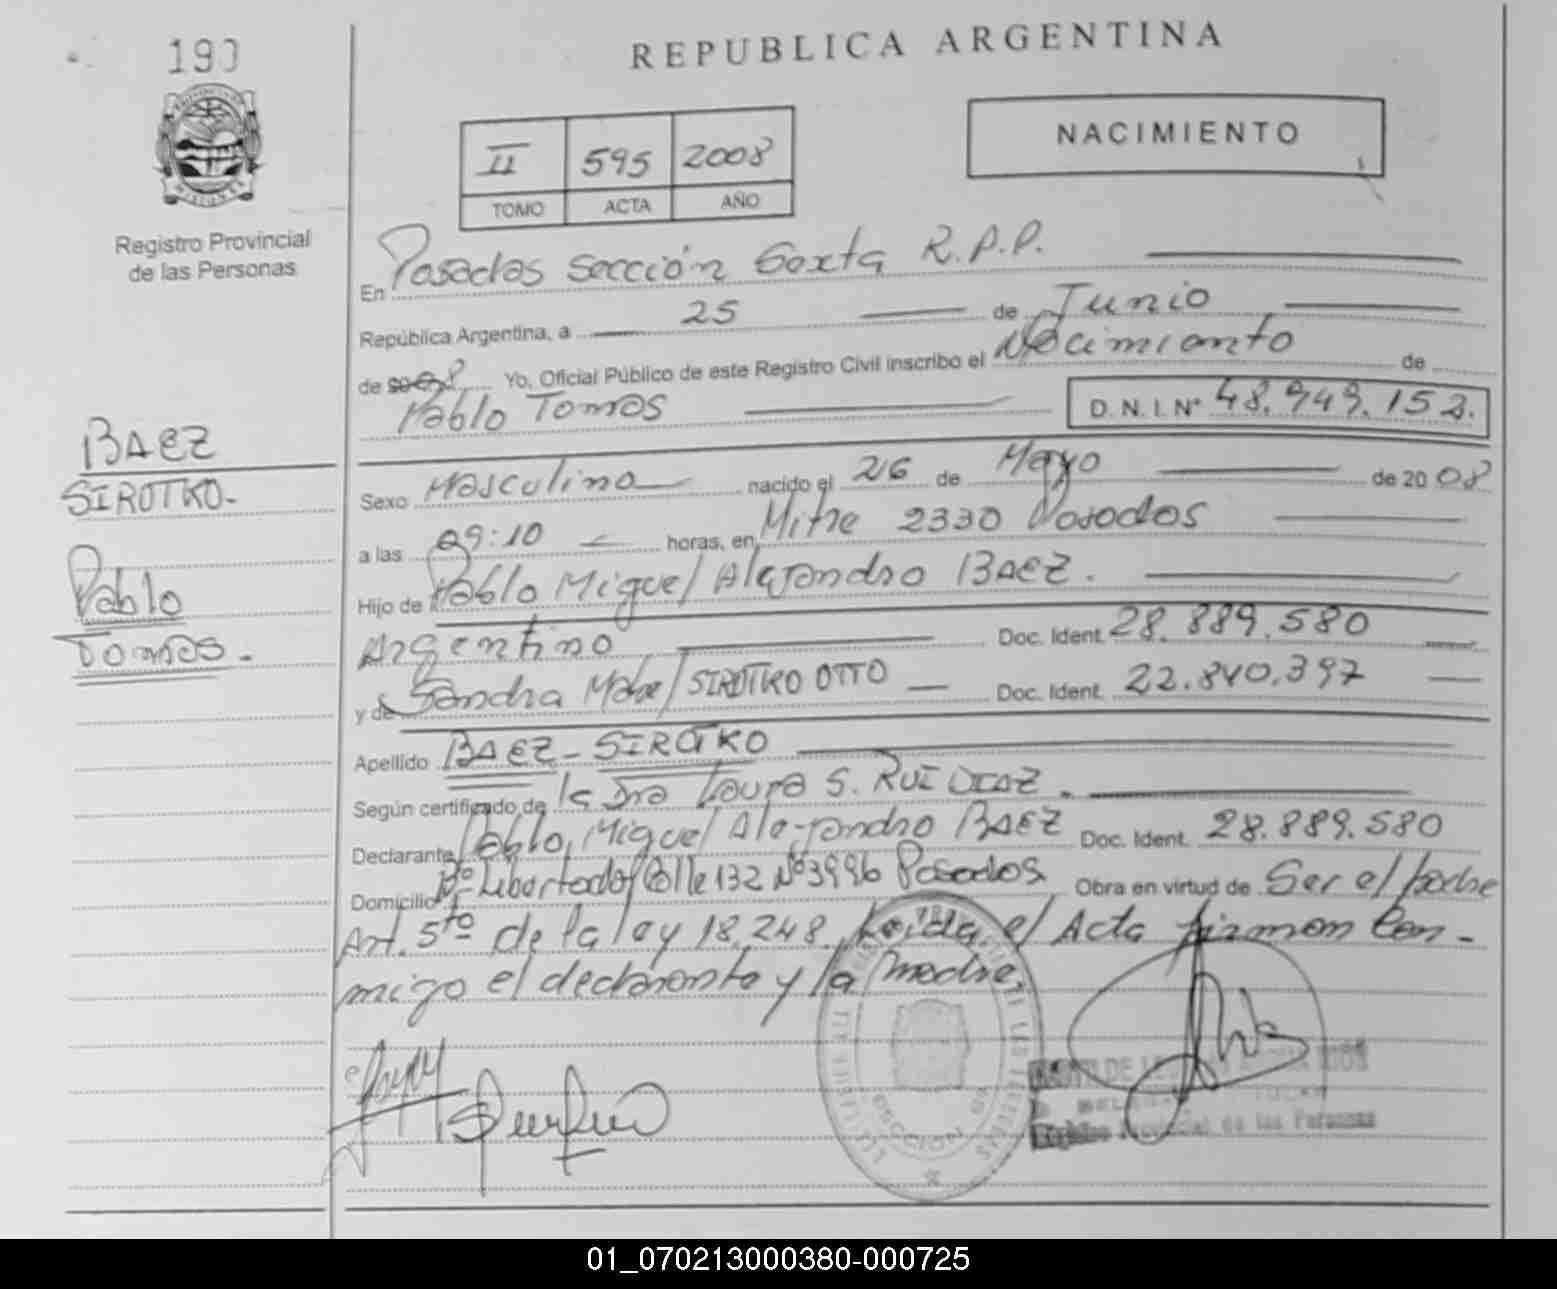 190
REPUBLICA ARGENTINA
NACIMIENTO
II 595 2008
TOMO ACTA AÑO
Registro Provincial
de las Personas
En Posadas Sección Sexta R.P.P.
República Argentina, a 25 de Junio
de 2008 Yo, Oficial Público de este Registro Civil inscribo el Nacimiento de
Pablo Tomas D.N.I. Nº 48.949.153.
BAEZ
SIROTKO-
Pablo
Tomas-
Sexo Masculino nacido el 26 de Mayo de 2008
a las 09:10 horas, en Mitre 2330 Posadas
Hijo de Pablo Miguel Alejandro BAEZ.
Argentino Doc. Ident. 28.889.580
y de Sandra Mabel SIROTKO OTTO Doc. Ident. 22.840.397
Apellido BAEZ-SIROTKO
Según certificado de la Dra Laura S. RUI DIAZ.
Declarante Pablo Miguel Alejandro BAEZ Doc. Ident. 28.889.580
Domicilio Bº Libertador Calle 132 Nº 3996 Posadas Obra en virtud de Ser el padre
Art. 5to de la ley 18.248. Leida el Acta firman con-
migo el declarante y la madre.
Provincial de las Personas
01_070213000380-000725